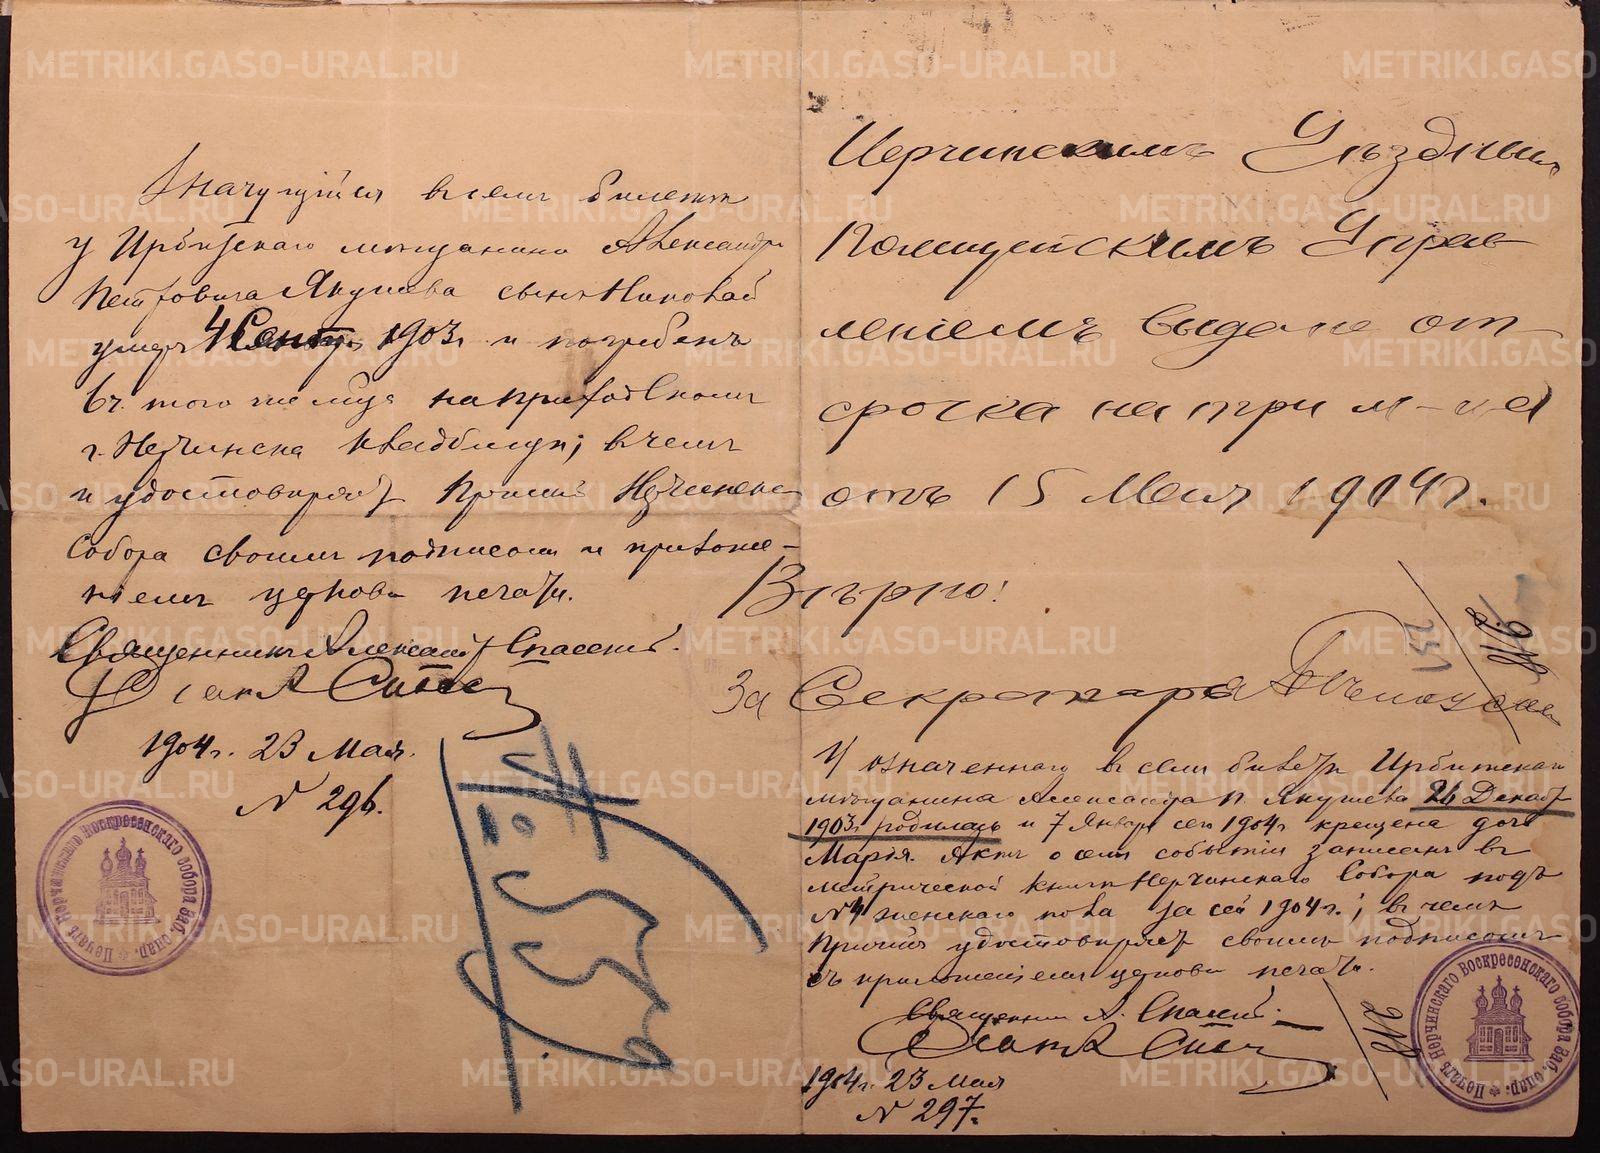 Значущійся въ семъ билетѣ
у Ирбитскаго мѣщанина Александра
Петровича Якушева сынъ Николай
умеръ 4 Сент. 1903 г. и погребенъ
въ того же м-ца на приходскомъ
г. Нерчинска кладбищѣ; въ чемъ
и удостовѣряетъ Причтъ Нерчинскаго
Собора своимъ подписомъ и приложе-
ніемъ церковн. печати.
Священникъ Александръ Спасскій.
1904 г. 23 Мая.
N 296.
Печать Нерчинскаго Воскресенскаго собора Заб. епар.
Нерчинскимъ Уѣзднымъ
Полицейскимъ Управ
леніемъ выдана от
срочка на три м-ца
отъ 15 Мая 1904 г.
Вѣрно!
За Секретаря
132
У означеннаго въ семъ билетѣ Ирбитскаго
мѣщанина Александра П. Якушева 26 Декаб.
1903 г. родилась и 7 Января сего 1904 г. крещена дочь
Марія. Актъ о семъ событіи записанъ въ
метрической книгѣ Нерчинскаго Собора подъ
N 4 женскаго пола за сей 1904 г.; въ чемъ
Причтъ удостовѣряетъ своимъ подписомъ
съ приложеніемъ церковн. печати.
Священникъ А. Спасскій.
1904 г. 23 Мая
N 297.
Печать Нерчинскаго Воскресенскаго собора Заб. епар.
METRIKI.GASO-URAL.RU